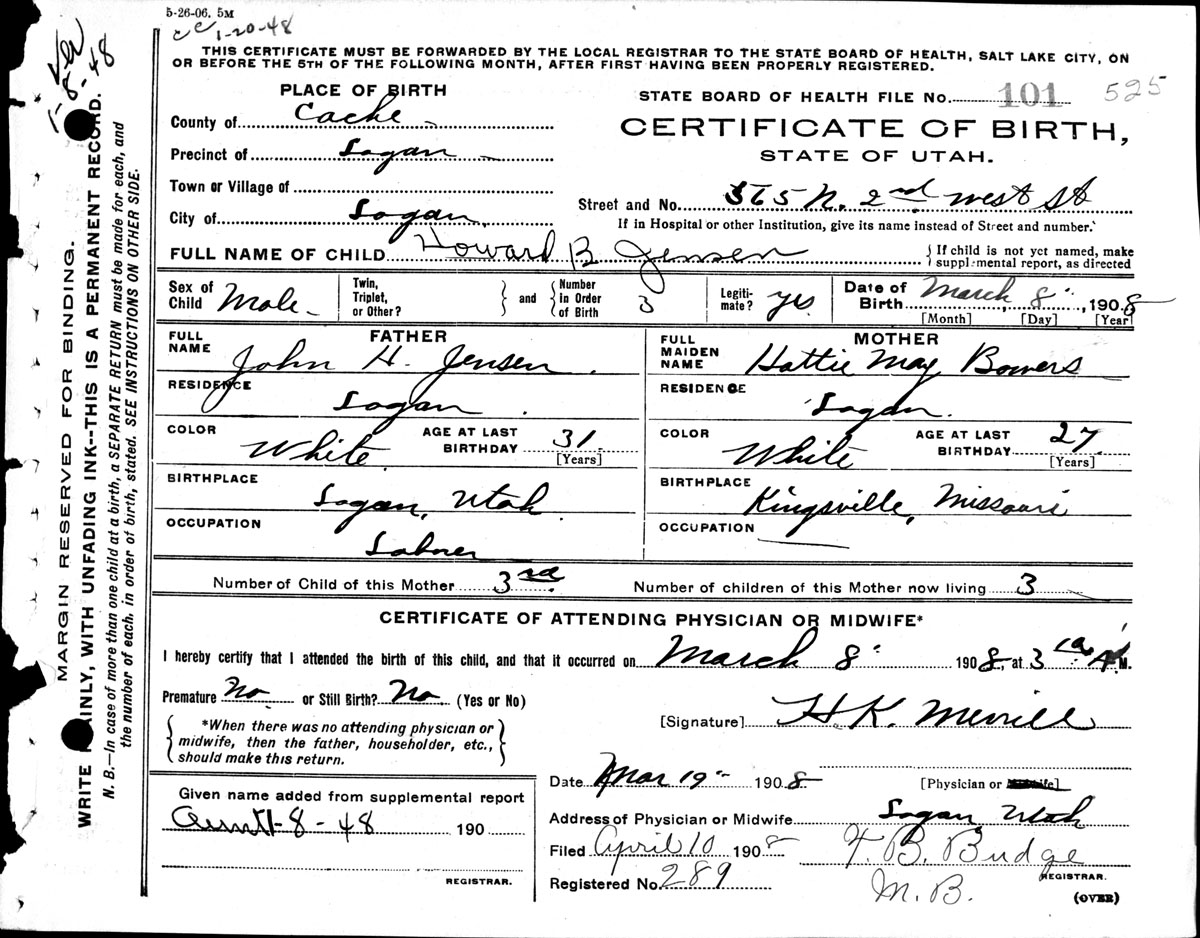 5-26-06. 5M
cc 1-20-48
1-8-48
THIS CERTIFICATE MUST BE FORWARDED BY THE LOCAL REGISTRAR TO THE STATE BOARD OF HEALTH, SALT LAKE CITY, ON
OR BEFORE THE 5TH OF THE FOLLOWING MONTH, AFTER FIRST HAVING BEEN PROPERLY REGISTERED.
MARGIN RESERVED FOR BINDING.
WRITE PLAINLY, WITH UNFADING INK--THIS IS A PERMANENT RECORD.
N. B.—In case of more than one child at a birth, a SEPARATE RETURN must be made for each, and
the number of each, in order of birth, stated. SEE INSTRUCTIONS ON OTHER SIDE.
PLACE OF BIRTH
County of Cache
Precinct of Logan
Town or Village of
City of Logan
STATE BOARD OF HEALTH FILE No. 101 525
CERTIFICATE OF BIRTH,
STATE OF UTAH.
Street and No. 365 N. 2nd West St
If in Hospital or other Institution, give its name instead of Street and number.
FULL NAME OF CHILD Howard B Jensen
If child is not yet named, make
supplemental report, as directed
Sex of Child Male
Twin, Triplet, or Other?
and Number in Order of Birth 3
Legitimate? yes
Date of Birth March 8, 1908
[Month] [Day] [Year]
FATHER
FULL NAME John H. Jensen
RESIDENCE Logan
COLOR White AGE AT LAST BIRTHDAY 31 [Years]
BIRTHPLACE Logan, Utah
OCCUPATION Laborer
MOTHER
FULL MAIDEN NAME Hattie May Bowers
RESIDENCE Logan
COLOR White AGE AT LAST BIRTHDAY 27 [Years]
BIRTHPLACE Kingsville, Missouri
OCCUPATION
Number of Child of this Mother 3rd Number of children of this Mother now living 3
CERTIFICATE OF ATTENDING PHYSICIAN OR MIDWIFE*
I hereby certify that I attended the birth of this child, and that it occurred on March 8 1908, at 3 A M.
Premature No or Still Birth? No (Yes or No)
*When there was no attending physician or
midwife, then the father, householder, etc.,
should make this return.
[Signature] H K. Merrill
[Physician or Midwife]
Given name added from supplemental report
1-8-48 190
REGISTRAR.
Date Mar 19 1908
Address of Physician or Midwife Logan Utah
Filed April 10 1908 F. B. Budge
REGISTRAR.
Registered No. 289 M. B.
(OVER)